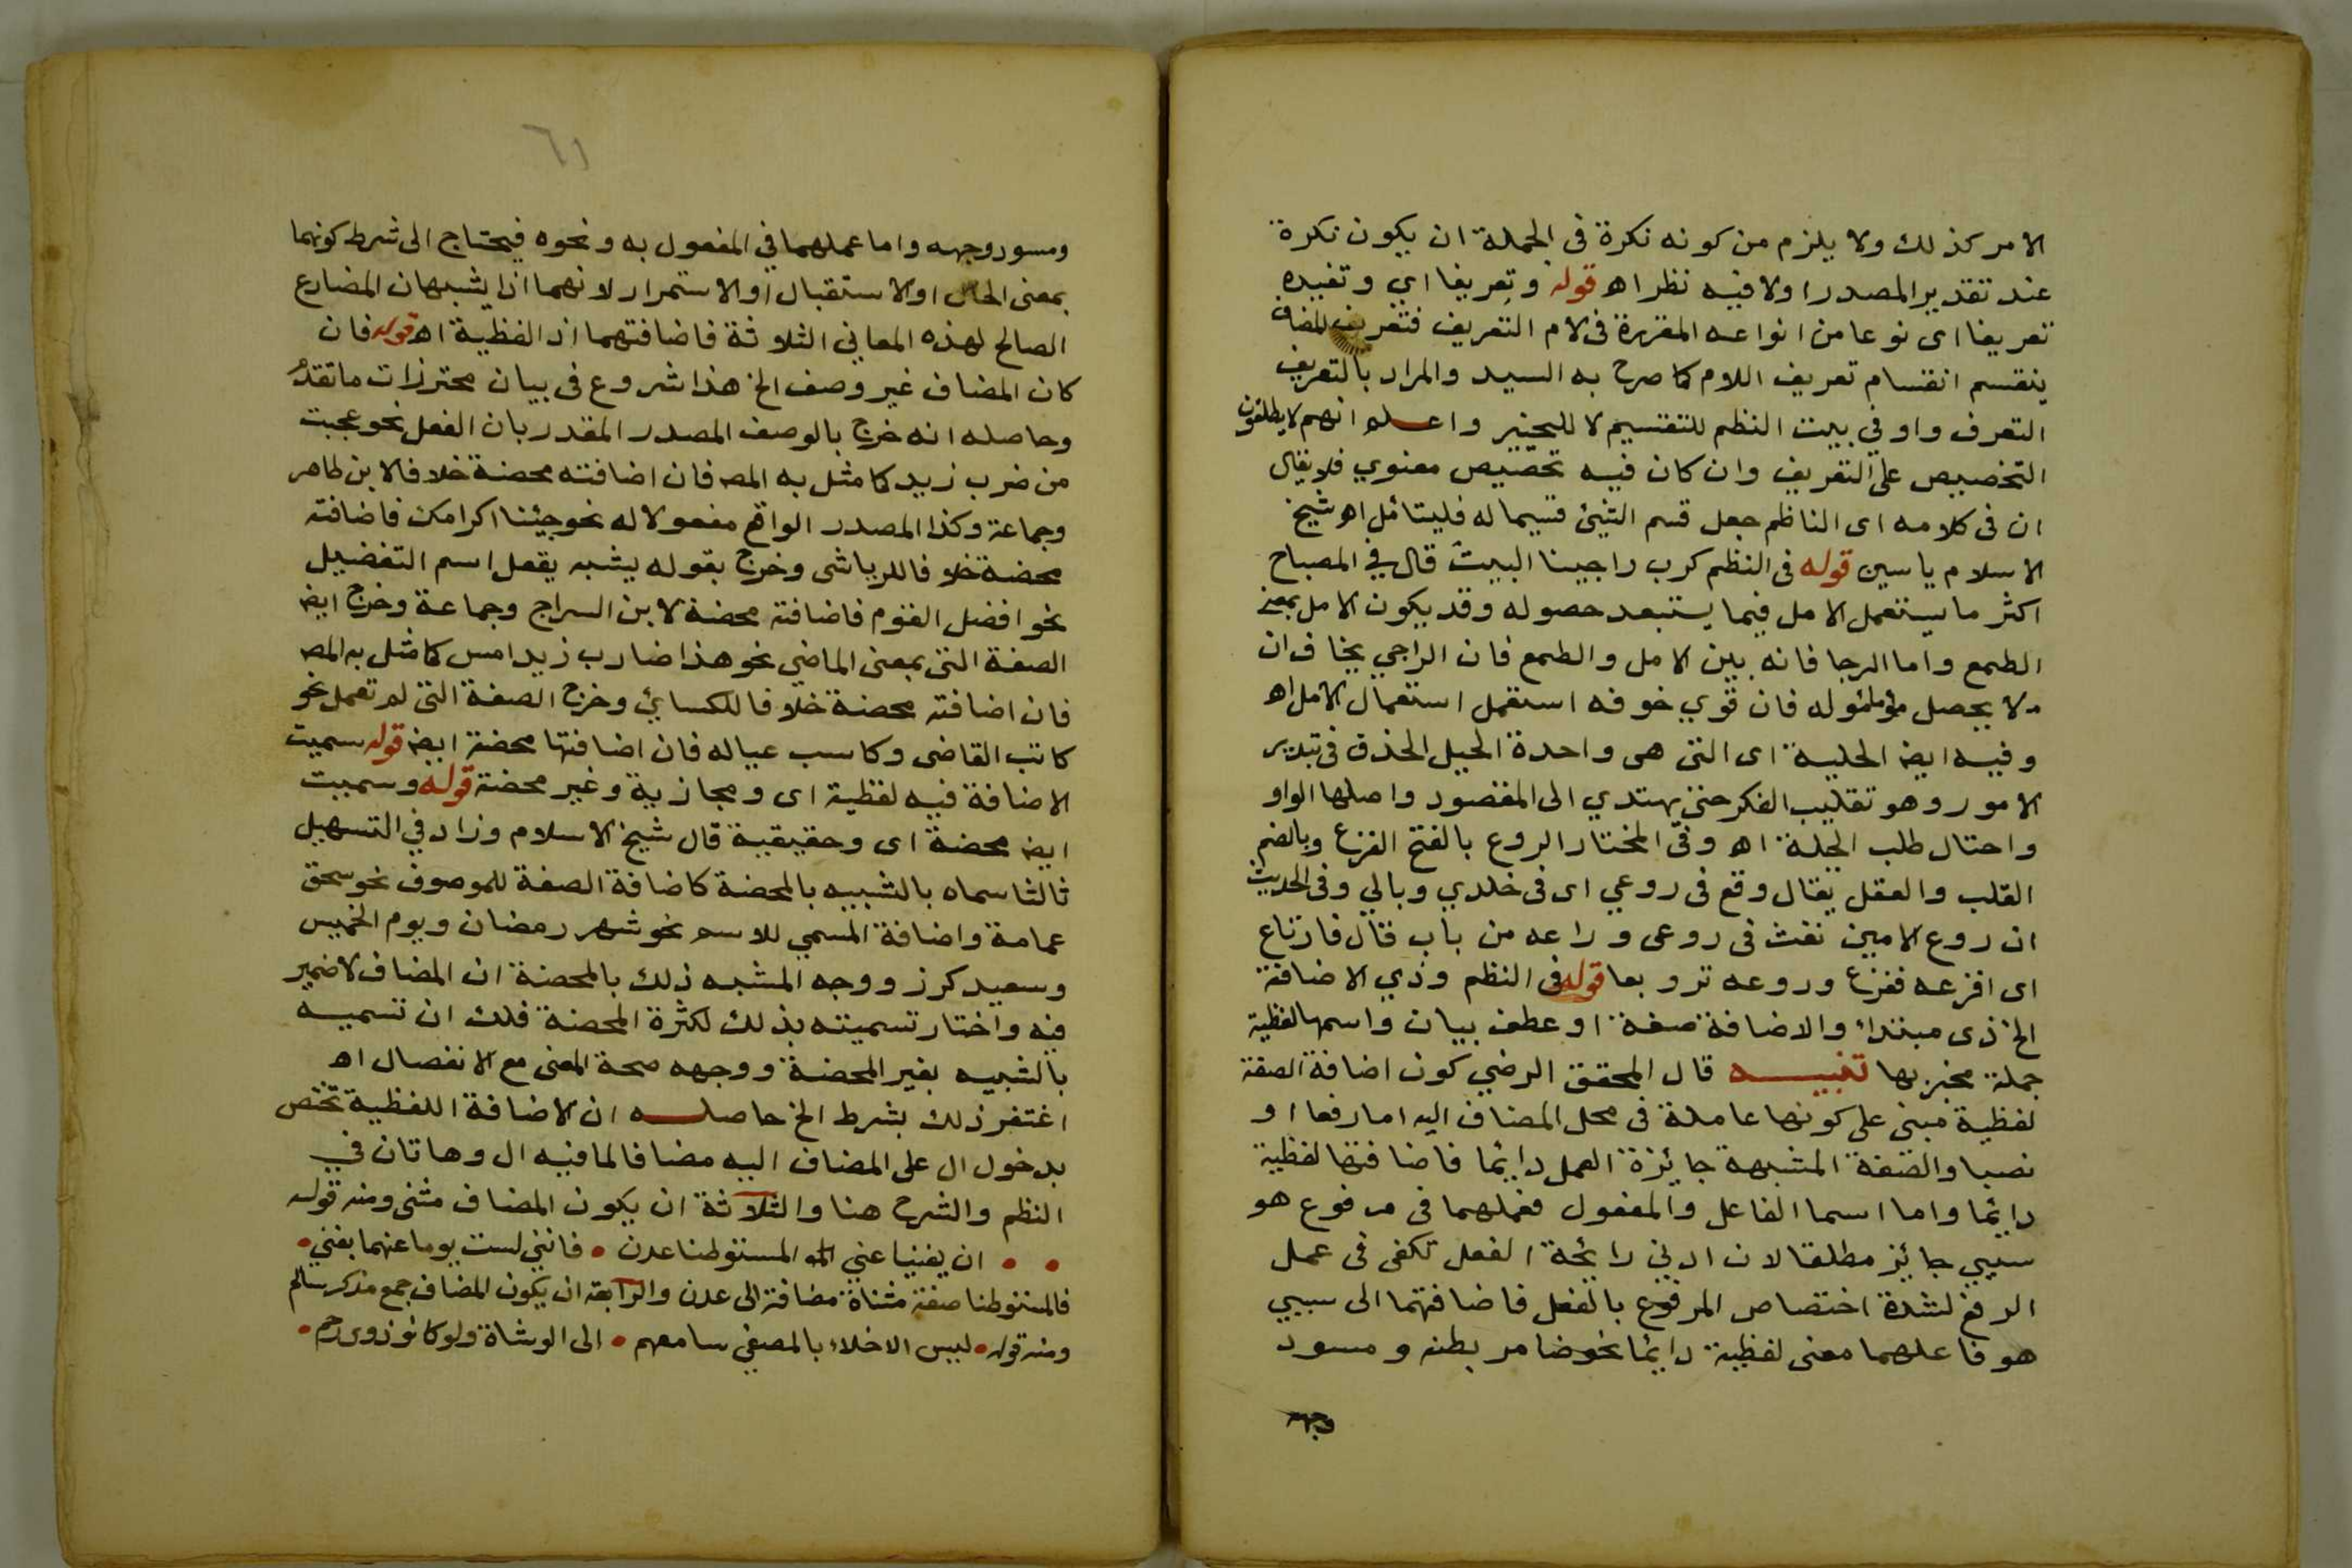 الامر كذلك ولا يلزم من كونه نكرة فى الجملة ان يكون نكرة
عند تقدير المصدر اولا فيه نظر اه قوله وتعريفا اي وتفيده
تعريفا اى نوعا من انواعه المقررة فى لام التعريف فتعريف المضاف
ينقسم انقسام تعريف اللام كما صرح به السيد والمراد بالتعريف
التعرف واو في بيت النظم للتقسيم لا للتخيير واعلم انهم لا يطلقون
التخصيص على التعريف وان كان فيه تخصيص معنوي فلا يقال
ان فى كلامه اى الناظم جعل قسم الشيئ قسيما له فليتأمل اه شيخ
الاسلام ياسين قوله فى النظم كرب راجينا البيت قال في المصباح
اكثر ما يستعمل الامل فيما يستبعد حصوله وقد يكون الامل بمعنى
الطمع واما الرجا فانه بين الامل والطمع فان الراجي يخاف ان
لا يحصل مأموله فان قوي خوفه استعمل استعمال الامل اه
وفيه ايضا الحليـة اى التى هى واحدة الحيل الحذق فى تدبير
الامور وهو تقليب الفكر حتى يهتدي الى المقصود واصلها الواو
واحتال طلب الحيلة اه وفى المختار الروع بالفتح الفزع وبالضم
القلب والعقل يقال وقع فى روعي اى فى خلدي وبالي وفى الحديث
ان روع الامين نفث فى روعى وراعه من باب قال فارتاع
اى افزعه ففزع وروعه ترويعا قوله فى النظم وذي الاضافة
الخ ذى مبتداء والاضافة صفة او عطف بيان واسمها لفظية
جملة مخبر بها تنبيـه قال المحقق الرضي كون اضافة الصفة
لفظية مبنى على كونها عاملة فى محل المضاف اليه اما رفعا او
نصبا والصفة المشبهة جائزة العمل دائما فاضافتها لفظية
دائما واما اسما الفاعل والمفعول فعملهما فى مرفوع هو
سببي جائز مطلقا لان ادنى رائحة الفعل تكفى فى عمل
الرفع لشدة اختصاص المرفوع بالفعل فاضافتهما الى سببي
هو فاعلهما معنى لفظية دائما نحو ضامر بطنه ومسود
وجهه
٦١
ومسود وجهه واما عملهما في المفعول به ونحوه فيحتاج الى شرط كونهما
بمعنى الحال او الاستقبال او الاستمرار لانهما اذا يشبهان المضارع
الصالح لهذه المعاني الثلاثة فاضافتهما اذا لفظية اه قوله فان
كان المضاف غير وصف الخ هذا شروع فى بيان محترزات ما تقدم
وحاصله انه خرج بالوصف المصدر المقدر بان الفعل نحو عجبت
من ضرب زيد كما مثل به المص فان اضافته محضة خلافا لابن طاهر
وجماعة وكذا المصدر الواقع مفعولا له نحو جئنا اكرامك فاضافته
محضة خلافا للرياشى وخرج بقوله يشبه يفعل اسم التفضيل
نحو افضل القوم فاضافته محضة لابن السراج وجماعة وخرج ايض
الصفة التى بمعنى الماضي نحو هذا ضارب زيد امس كما مثل به المص
فان اضافته محضة خلافا للكسائي وخرج الصفة التى لم تعمل نحو
كاتب القاضى وكاسب عياله فان اضافتها محضة ايض قوله سميت
الاضافة فيه لفظية اى ومجازية وغير محضة قوله وسميت
ايض محضة اى وحقيقية قال شيخ الاسلام وزاد في التسهيل
ثالثا سماه بالشبيه بالمحضة كاضافة الصفة للموصوف نحو سحق
عمامة واضافة المسمي للاسم نحو شهر رمضان ويوم الخميس
وسعيد كرز ووجه المشبه ذلك بالمحضة ان المضاف لا ضمير
فيه واختار تسميته بذلك لكثرة المحضة فلك ان تسميـه
بالشبيه بغير المحضة ووجهه صحة المعنى مع الانفصال اه
اغتفر ذلك بشرط الخ حاصلـه ان الاضافة اللفظية تختص
بدخول ال على المضاف اليه مضافا لما فيه ال وهاتان في
النظم والشرح هنا والثلاثة ان يكون المضاف مثنى ومنه قوله
• • ان يغنيا عني المستوطنا عدن • فانني لست يوما عنهما بغني •
فالمستوطنا صفة مثناة مضافة الى عدن والرابعة ان يكون المضاف جمع مذكر سالم
ومنه قوله • ليس الاخلاء بالمصغي سامعهم • الى الوشاة ولو كانو ذوى رحم •